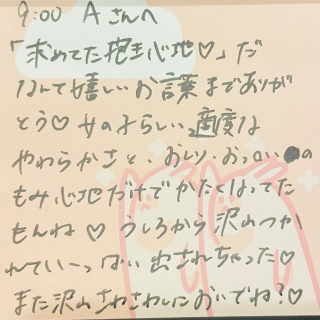 9:00 Aさんへ
「求めてた抱き心地♡」だ
なんて嬉しいお言葉までありが
とう♡ 女の子らしい適度な
やわらかさと、おしり・おっぱいの
もみ心地だけでかたくなってた
もんね♡ うしろから沢山つか
れていーっぱい出されちゃった♡
また沢山さわさわしにおいでね？♡